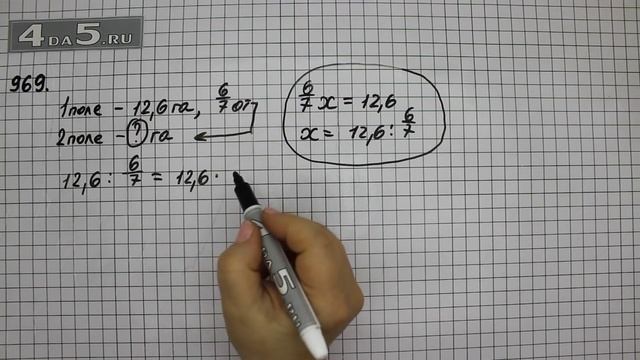 4DA5.RU
969.
1 поле – 12,6 га, 6/7 от
2 поле – ? га
12,6 : 6/7 = 12,6 ·
6/7 x = 12,6
x = 12,6 : 6/7